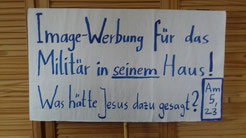 Image-Werbung für das
Militär in seinem Haus!
Was hätte Jesus dazu gesagt?
Am
5,
23